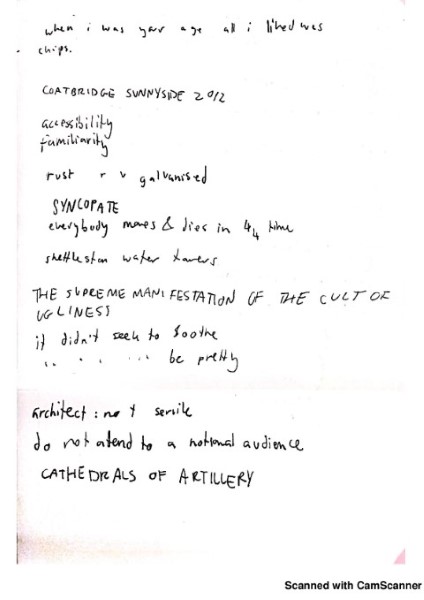 when i was your age all i liked was
chips.
COATBRIDGE SUNNYSIDE 2012
accessibility
familiarity
rust v galvanised
SYNCOPATE
everybody moves & dies in 4/4 time
shettleston water towers
THE SUPREME MANIFESTATION OF THE CULT OF
UGLINESS
it didn't seek to soothe
" " " " be pretty
Architect: not servile
do not atend to a notional audience
CATHEDRALS OF ARTILLERY
Scanned with CamScanner